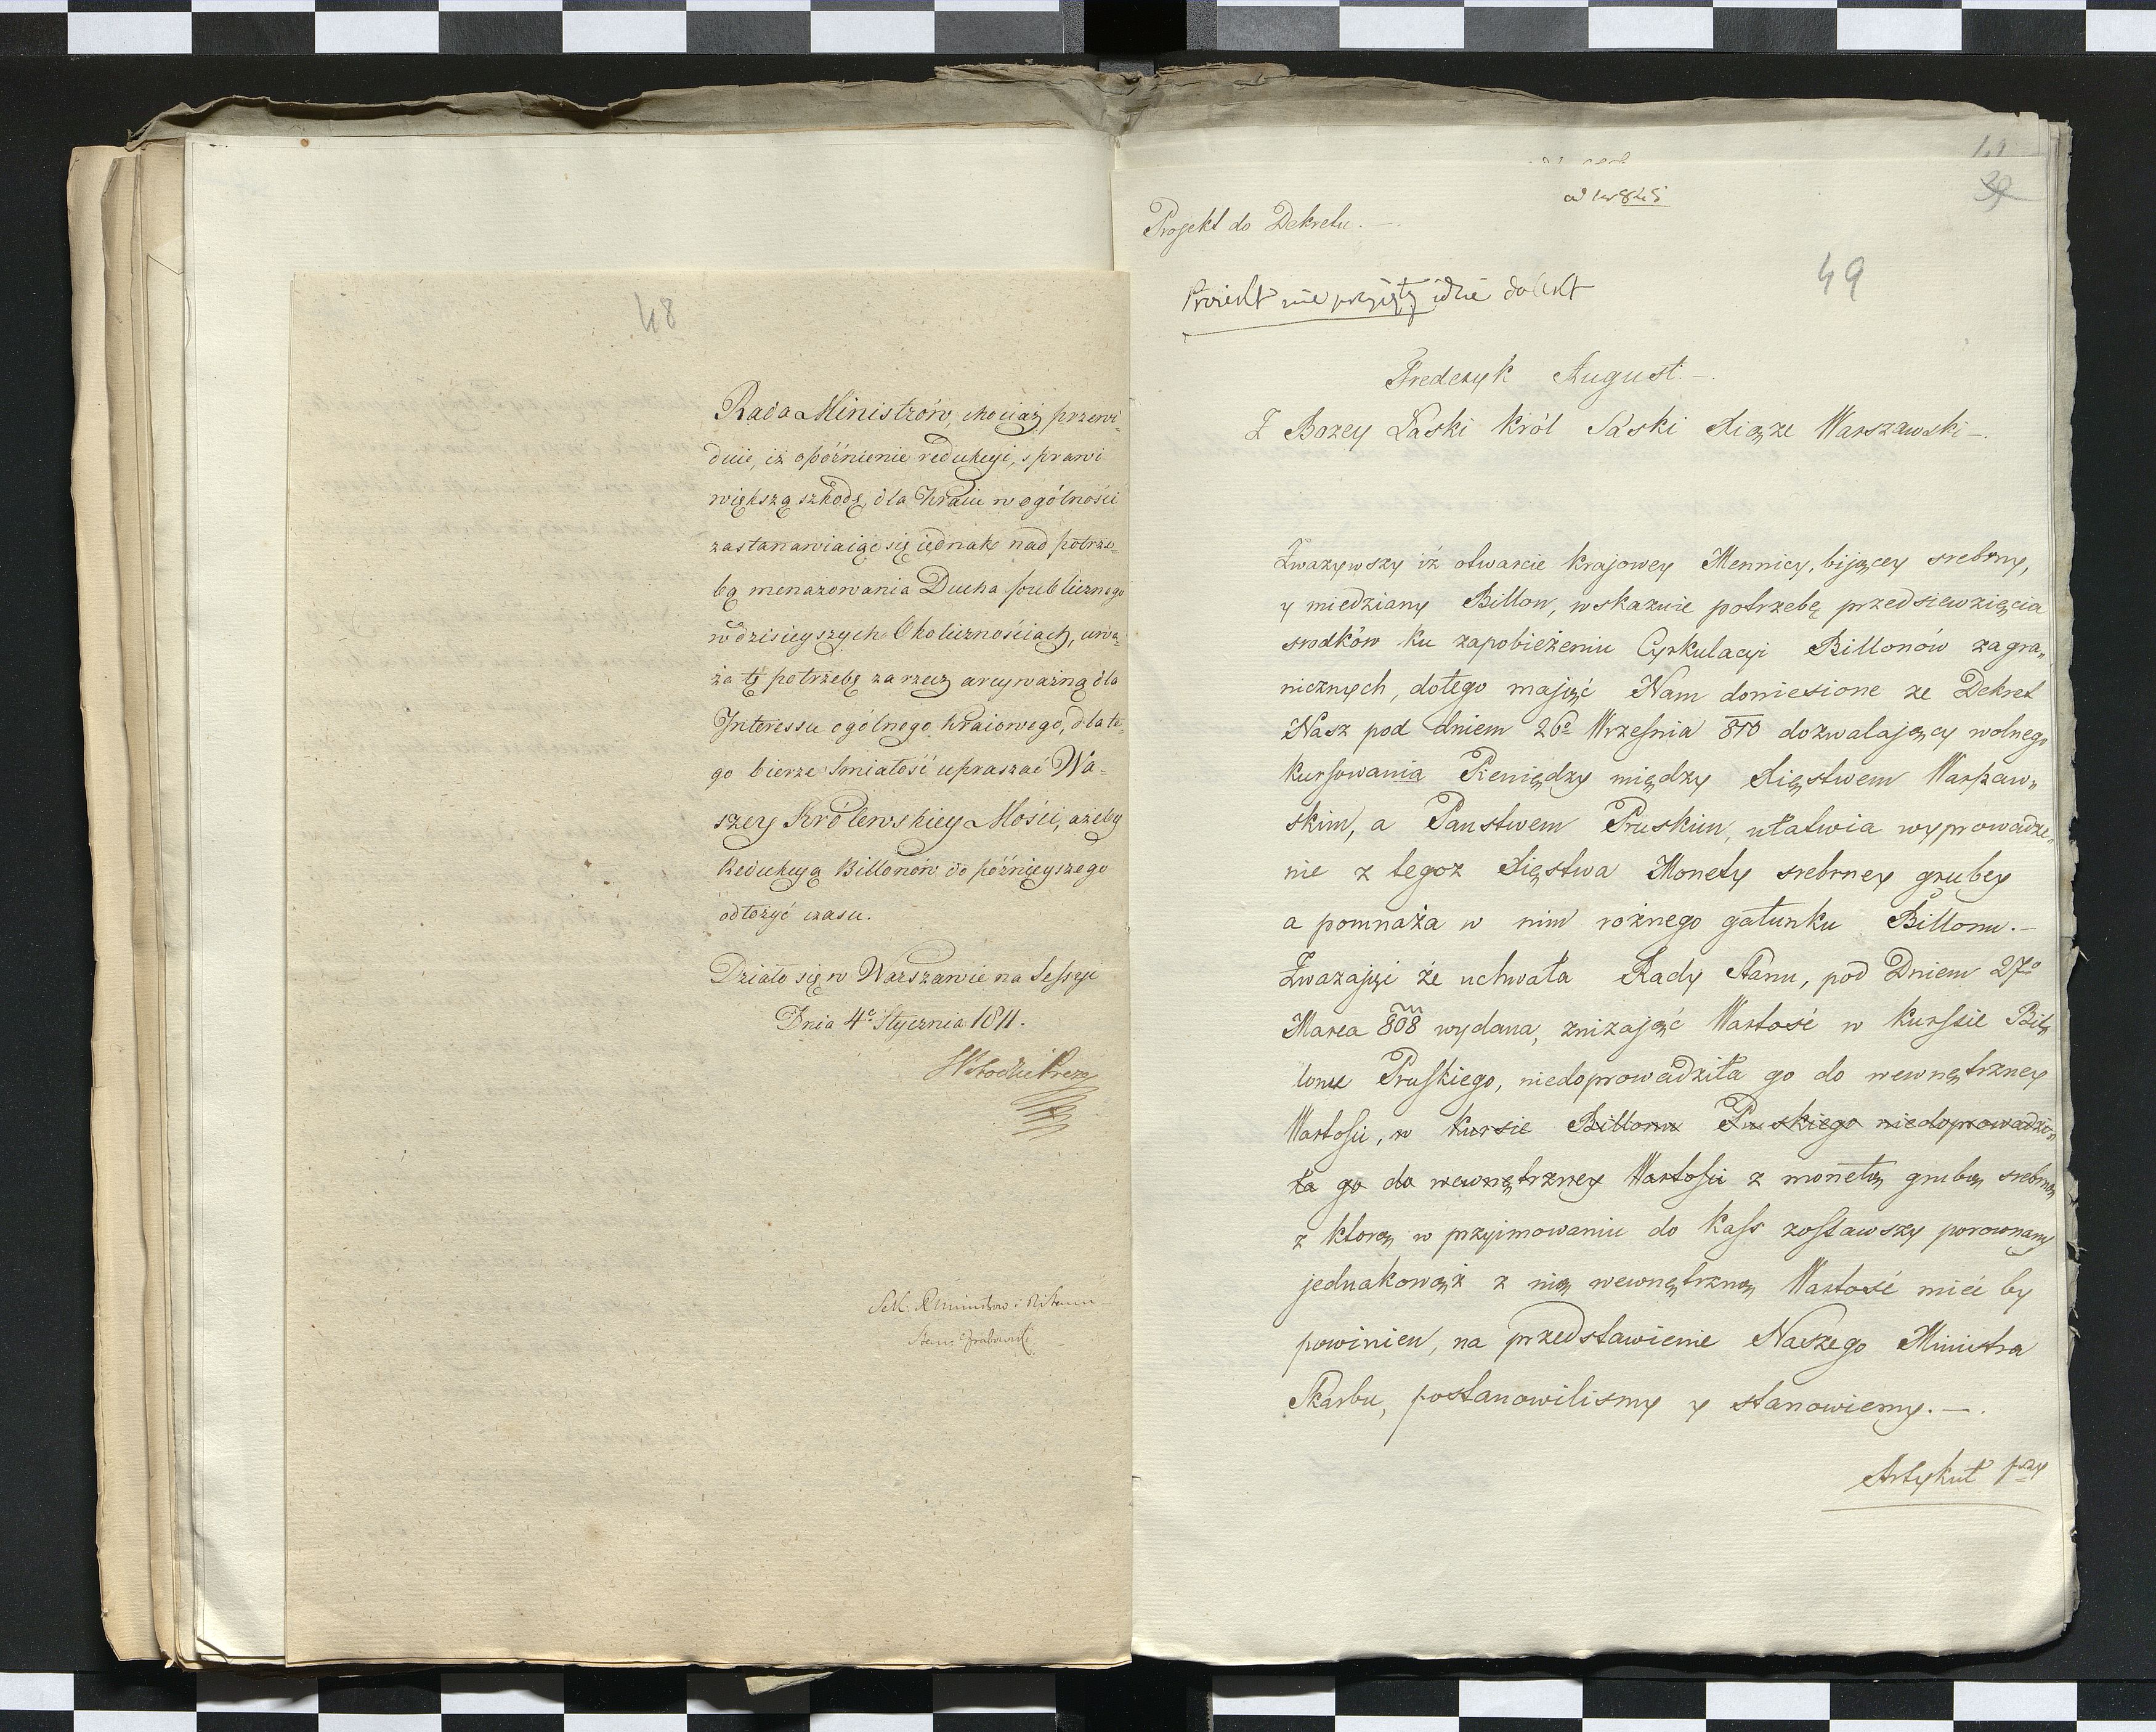 48
Rada Ministrów, chociaż przewi-
duie, iż opóźnienie redukcyi, sprawi
większą szkodę, dla Kraiu w ogólności
zastanawiaiąc się iednak nad potrze-
bą menażowania Ducha publicznego
w dzisieyszych Okolicznościach, uwa-
ża tę potrzebę za rzecz arcyważną dla
Interessu ogólnego kraiowego, dla te-
go bierze śmiałość upraszać Wa-
szey Królewskiey Mości, ażeby
Redukcyą Billonów do późnieyszego
odłożyć czasu.
Działo się w Warszawie na Sessyi
Dnia 4º Stycznia 1811.
39
Projekt do Dekretu. —
49
Proiekt nie przyięty idzie
Frederyk August. —
Z Bozey Łaski Król Saski Xiąże Warszawski —.
Zwazywszy iż otwarcie krajowey Mennicy, bijącey srebrny,
y miedziany Billon, wskazuie potrzebę przedsiewzięcia
srodków ku zapobieżeniu Cyrkulacyi Billonów zagra„
nicznych, dotego mająć Nam doniesione ze Dekret
Nasz pod dniem 26º Wrzesnia 810 dozwalający wolnego
kursowania Pieniędzy między Xięstwem Warszaw„
skim, a Panstwem Pruskim, ułatwia wyprowadze„
nie z tegoz Xięstwa Monety srebrney grubey
a pomnaża w nim rożnego gatunku Billonu. —
Zwazając że uchwała Rady Stanu, pod Dniem 27º
Marca 808 wydana, zniząjąć Wartość w kurssie Bil„
lonu Pruskiego, niedoprowadziła go do wewnętrzney
Wartosci, w kursie Billonu Pruskiego niedoprowadzi„
ła go do wewnętrzney Wartosci z monetą grubą srebrną
z ktorą w przyimowaniu do kass zostawszy porownany
jednakowąż z nią wewnętrzną Wartość mieć by
powinien, na przedstawienie Naszego Ministra
Skarbu, postanowilismy y stanowiemy. —.
Artykuł 1szy